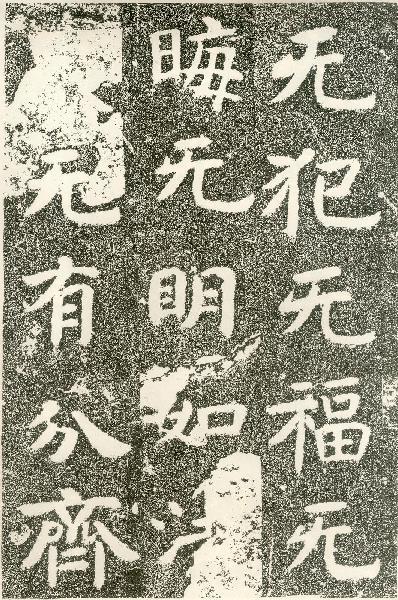 无犯无福无
晦无明如法
无有分齊